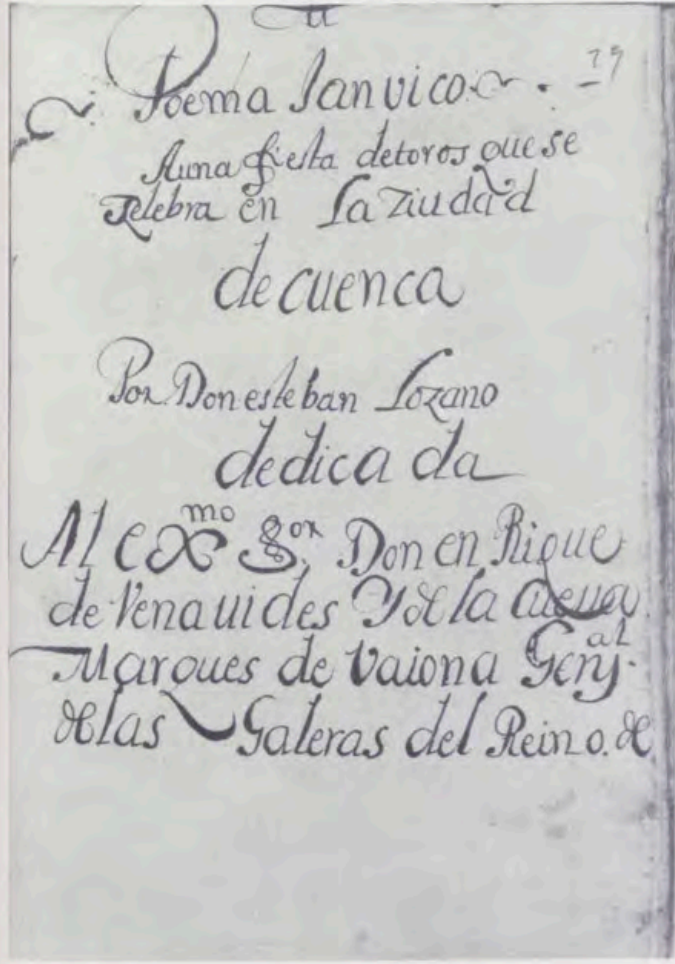 Poema Janvico 29
A una fiesta de toros que se
Zelebra en La Ziudad
de cuenca
Por Don esteban Lozano
dedica da
Al exmo Sor Don en Rique
de Venauides Y de la Cueua
Marques de Vaiona Genal
de las Galeras del Reino. de